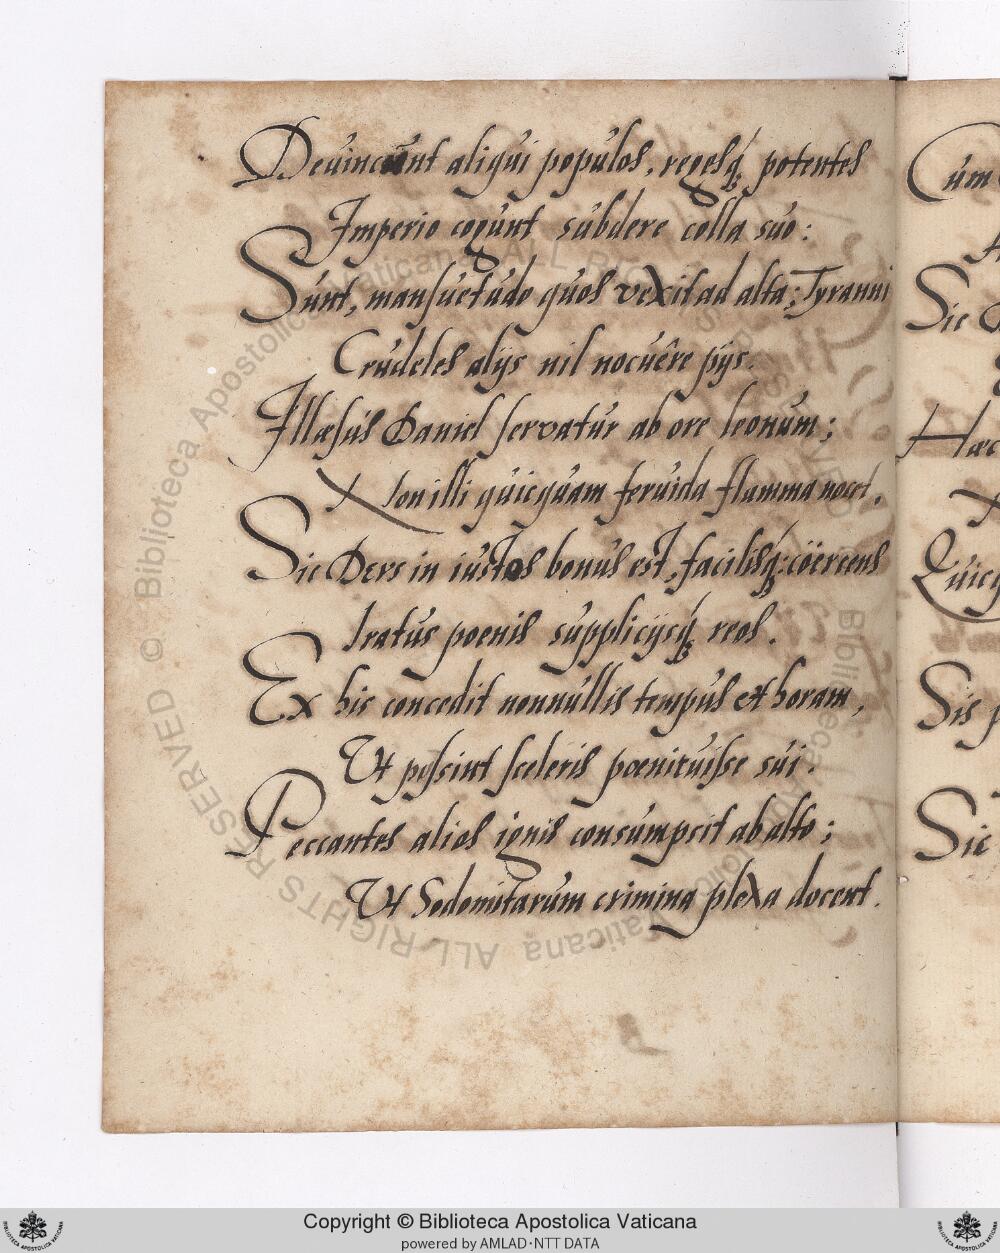 Deuincunt aliqui populos, regesq; potentes
Imperio cogunt subdere colla suo:
Sunt, mansuetudo quos vexit ad alta; Tyranni
Crudeles alijs nil nocuêre pijs.
Illæsus Daniel servatur ab ore leonum;
Non illi quicquam feruida flamma nocet.
Sic Deus in iustos bonus est, facilisq;: cöercens
Iratus poenis supplicijsq; reos.
Ex his concedit nonnullis tempus et horam,
Ut possint sceleris pœnituisse sui.
Peccantes alios ignis consumpsit ab alto;
Ut Sodomitarum crimina plexa docent.
Cum
Sic
Hæc
Sis
Sic
© Biblioteca Apostolica Vaticana ALL RIGHTS RESERVED
© Biblioteca Apostolica Vaticana ALL RIGHTS RESERVED
Copyright © Biblioteca Apostolica Vaticana
powered by AMLAD·NTT DATA